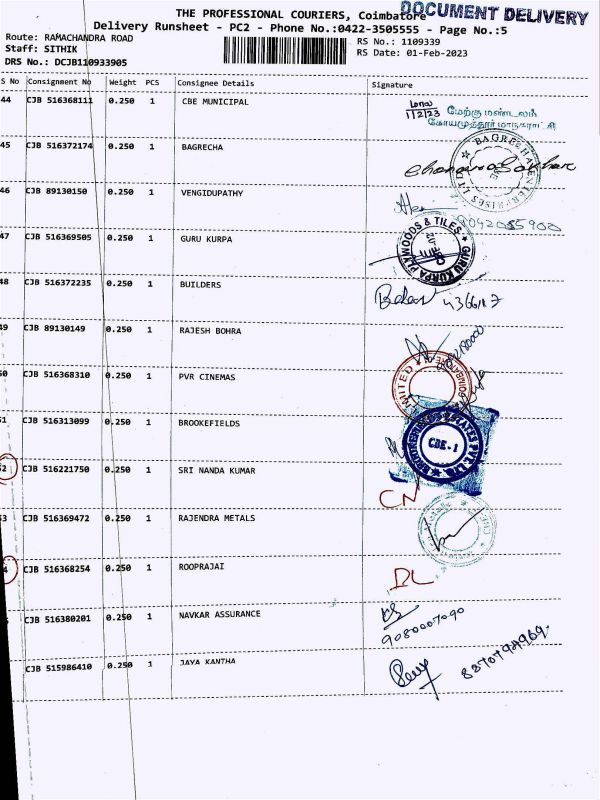 THE PROFESSIONAL COURIERS, Coimbatore
DOCUMENT DELIVERY
Delivery Runsheet - PC2 - Phone No.:0422-3505555 - Page No.:5
Route: RAMACHANDRA ROAD
Staff: SITHIK
DRS No.: DCJB110933905
RS No.: 1109339
RS Date: 01-Feb-2023
S No Consignment No Weight PCS Consignee Details Signature
44 CJB 516368111 0.250 1 CBE MUNICIPAL
1/2/23 மேற்கு மண்டலம்
கோயமுத்தூர் மாநகராட்சி
45 CJB 516372174 0.250 1 BAGRECHA
46 CJB 89130150 0.250 1 VENGIDUPATHY
47 CJB 516369505 0.250 1 GURU KURPA
GURU KURPA PLYWOODS & TILES
48 CJB 516372235 0.250 1 BUILDERS
49 CJB 89130149 0.250 1 RAJESH BOHRA
50 CJB 516368310 0.250 1 PVR CINEMAS
LIMITED
51 CJB 516313099 0.250 1 BROOKEFIELDS
CBE-1
52 CJB 516221750 0.250 1 SRI NANDA KUMAR CN
53 CJB 516369472 0.250 1 RAJENDRA METALS
54 CJB 516368254 0.250 1 ROOPRAJAI DL
CJB 516380201 0.250 1 NAVKAR ASSURANCE
9080007090
CJB 515986410 0.250 1 JAYA KANTHA